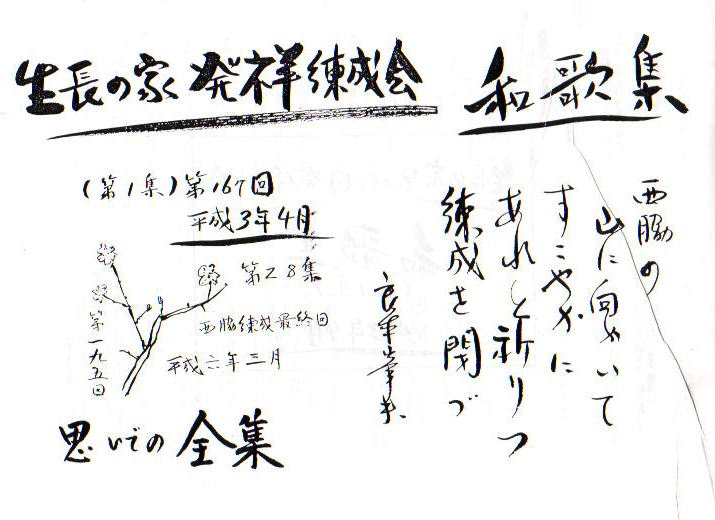 生長の家 発祥練成会 和歌集
(第1集)第167回
平成3年4月
第28集
西脇練成最終回
第一九五回
平成六年三月
思いでの 全集
西脇の
山に向かいて
すこやかに
あれと祈りつ
練成を閉づ